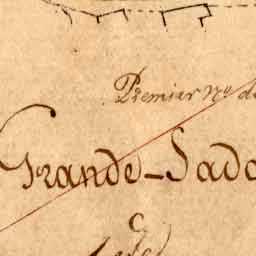 Premier no d
Grande-Sado
c